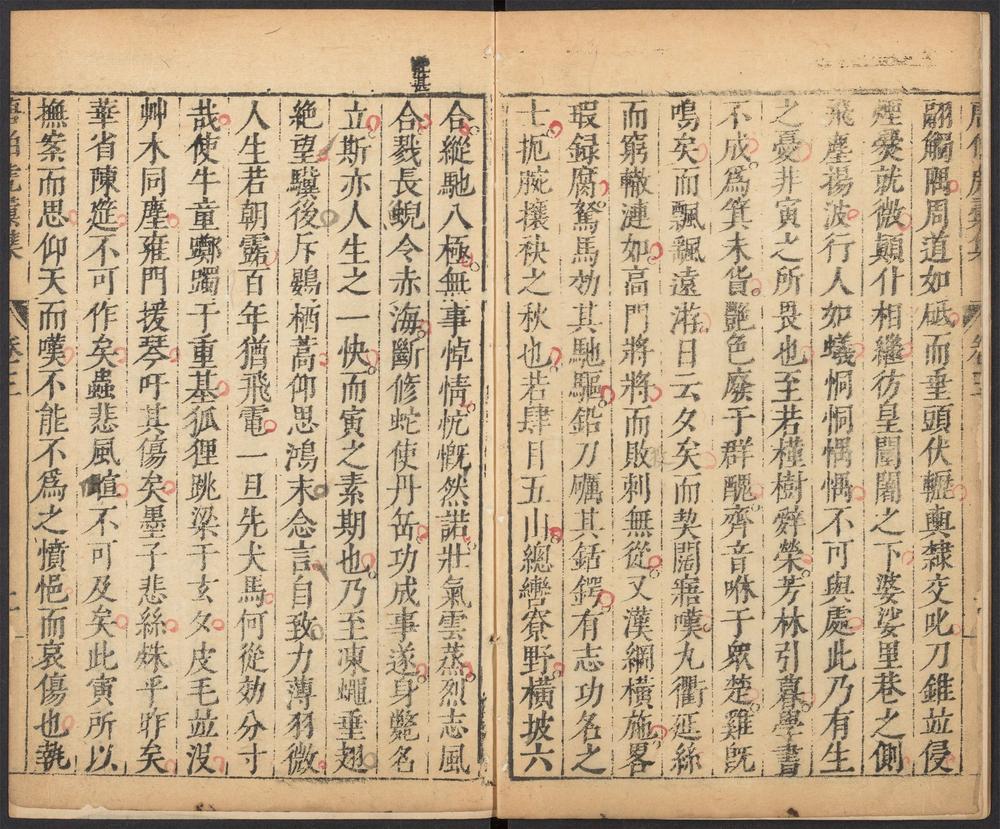 翩觸隅周道如砥而垂頭伏轣輿隸交叱刀錐竝侵
煙爨就微顛仆相繼彷皇閶闔之下婆娑里巷之側
飛塵揚波行人如蟻恫恫不可與處此乃有生
之憂非寅之所畏也至若槿樹辭榮芳林引暮學書
不成爲箕未貨艷色廢于群醜齊音咻于眾楚雞旣
鳴矣而飄飄遠游日云夕矣而契闊寤嘆九衢延絲
而窮轍漣如高門將將而敗刺無從又漢綱橫施畧
瑕録腐駑馬効其馳驅鉛刀礪其銛鍔有志功名之
士扼腕攘袂之秋也若肆目五山總轡寮野橫披六
合縱馳八極無事悼情慷慨然諾壯氣雲蒸烈志風
合戮長鯢令赤海斷修蛇使丹岳功成事遂身斃名
立斯亦人生之一快而寅之素期也乃至凍蠅垂翅
絶望驥後斥鷃栖蒿仰思鴻末念言自致力薄羽微
人生若朝露百年猶飛電一旦先犬馬何從効分寸
哉使牛童躑躅于重基狐狸跳梁于玄夕皮毛竝沒
艸木同塵雍門援琴吁其傷矣墨子悲絲姝乎昨矣
華省陳筵不可作矣蟲悲風喧不可及矣此寅所以
撫案而思仰天而嘆不能不爲之憤悒而哀傷也執
卷三
二